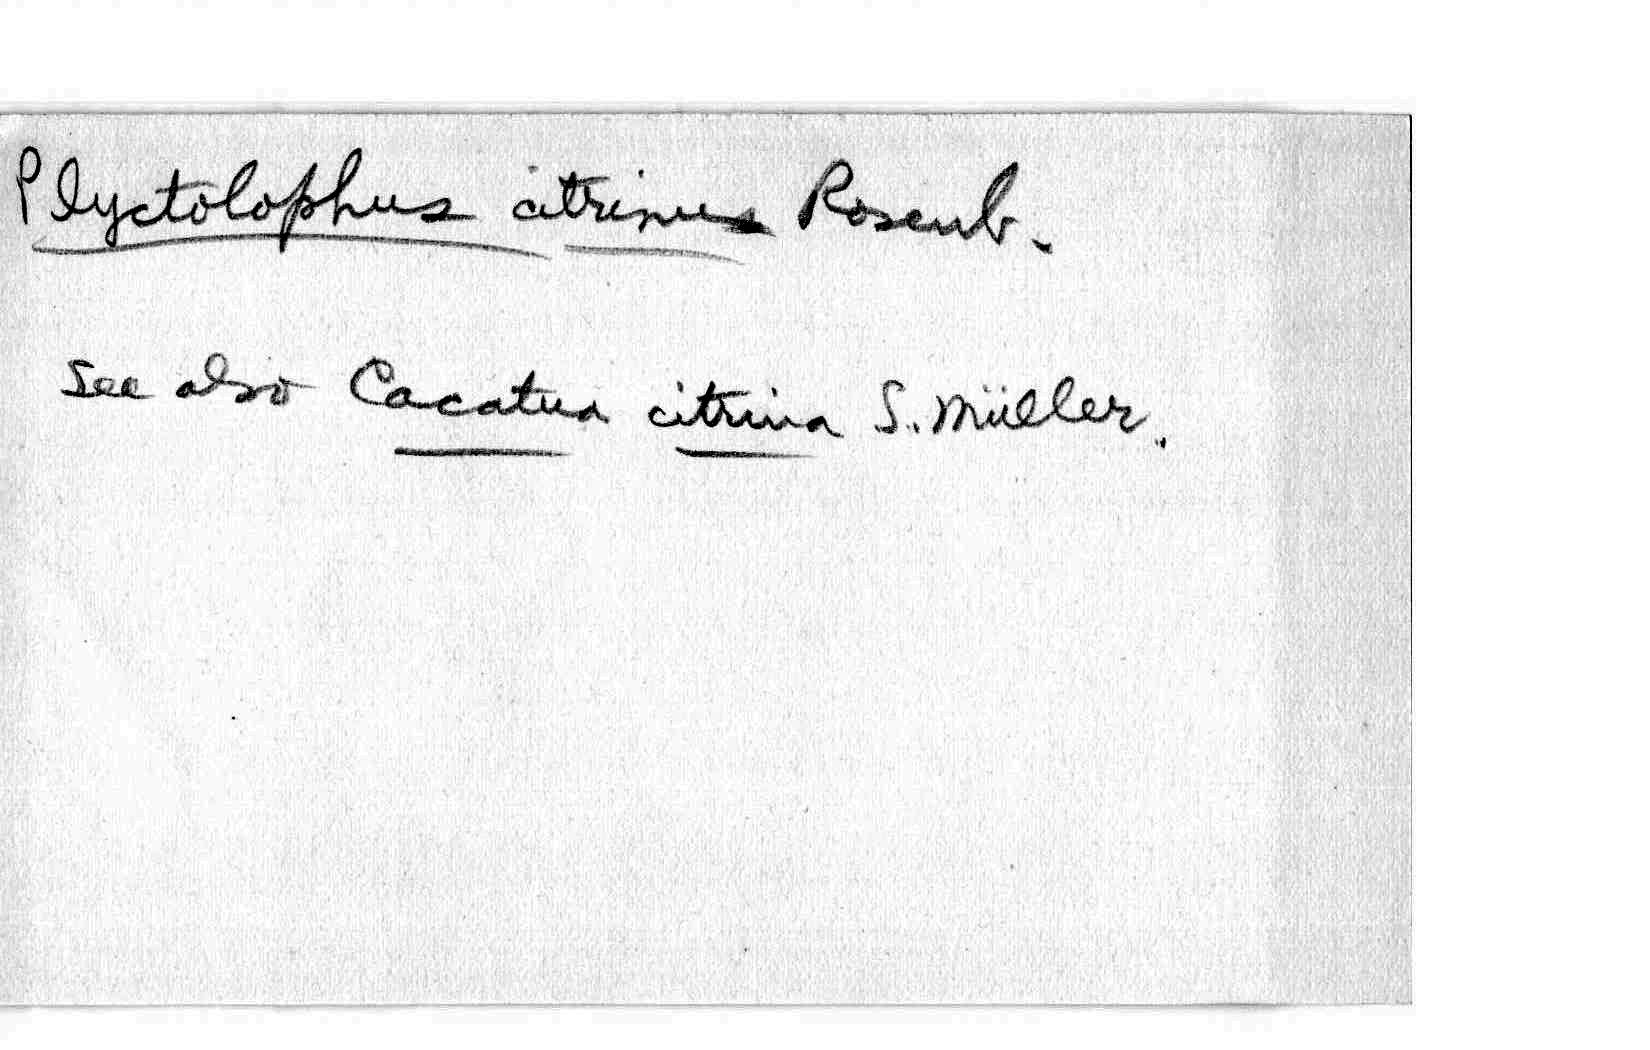 Plyctolophus citrinus Rosenb.
See also Cacatua citrina S. Müller.